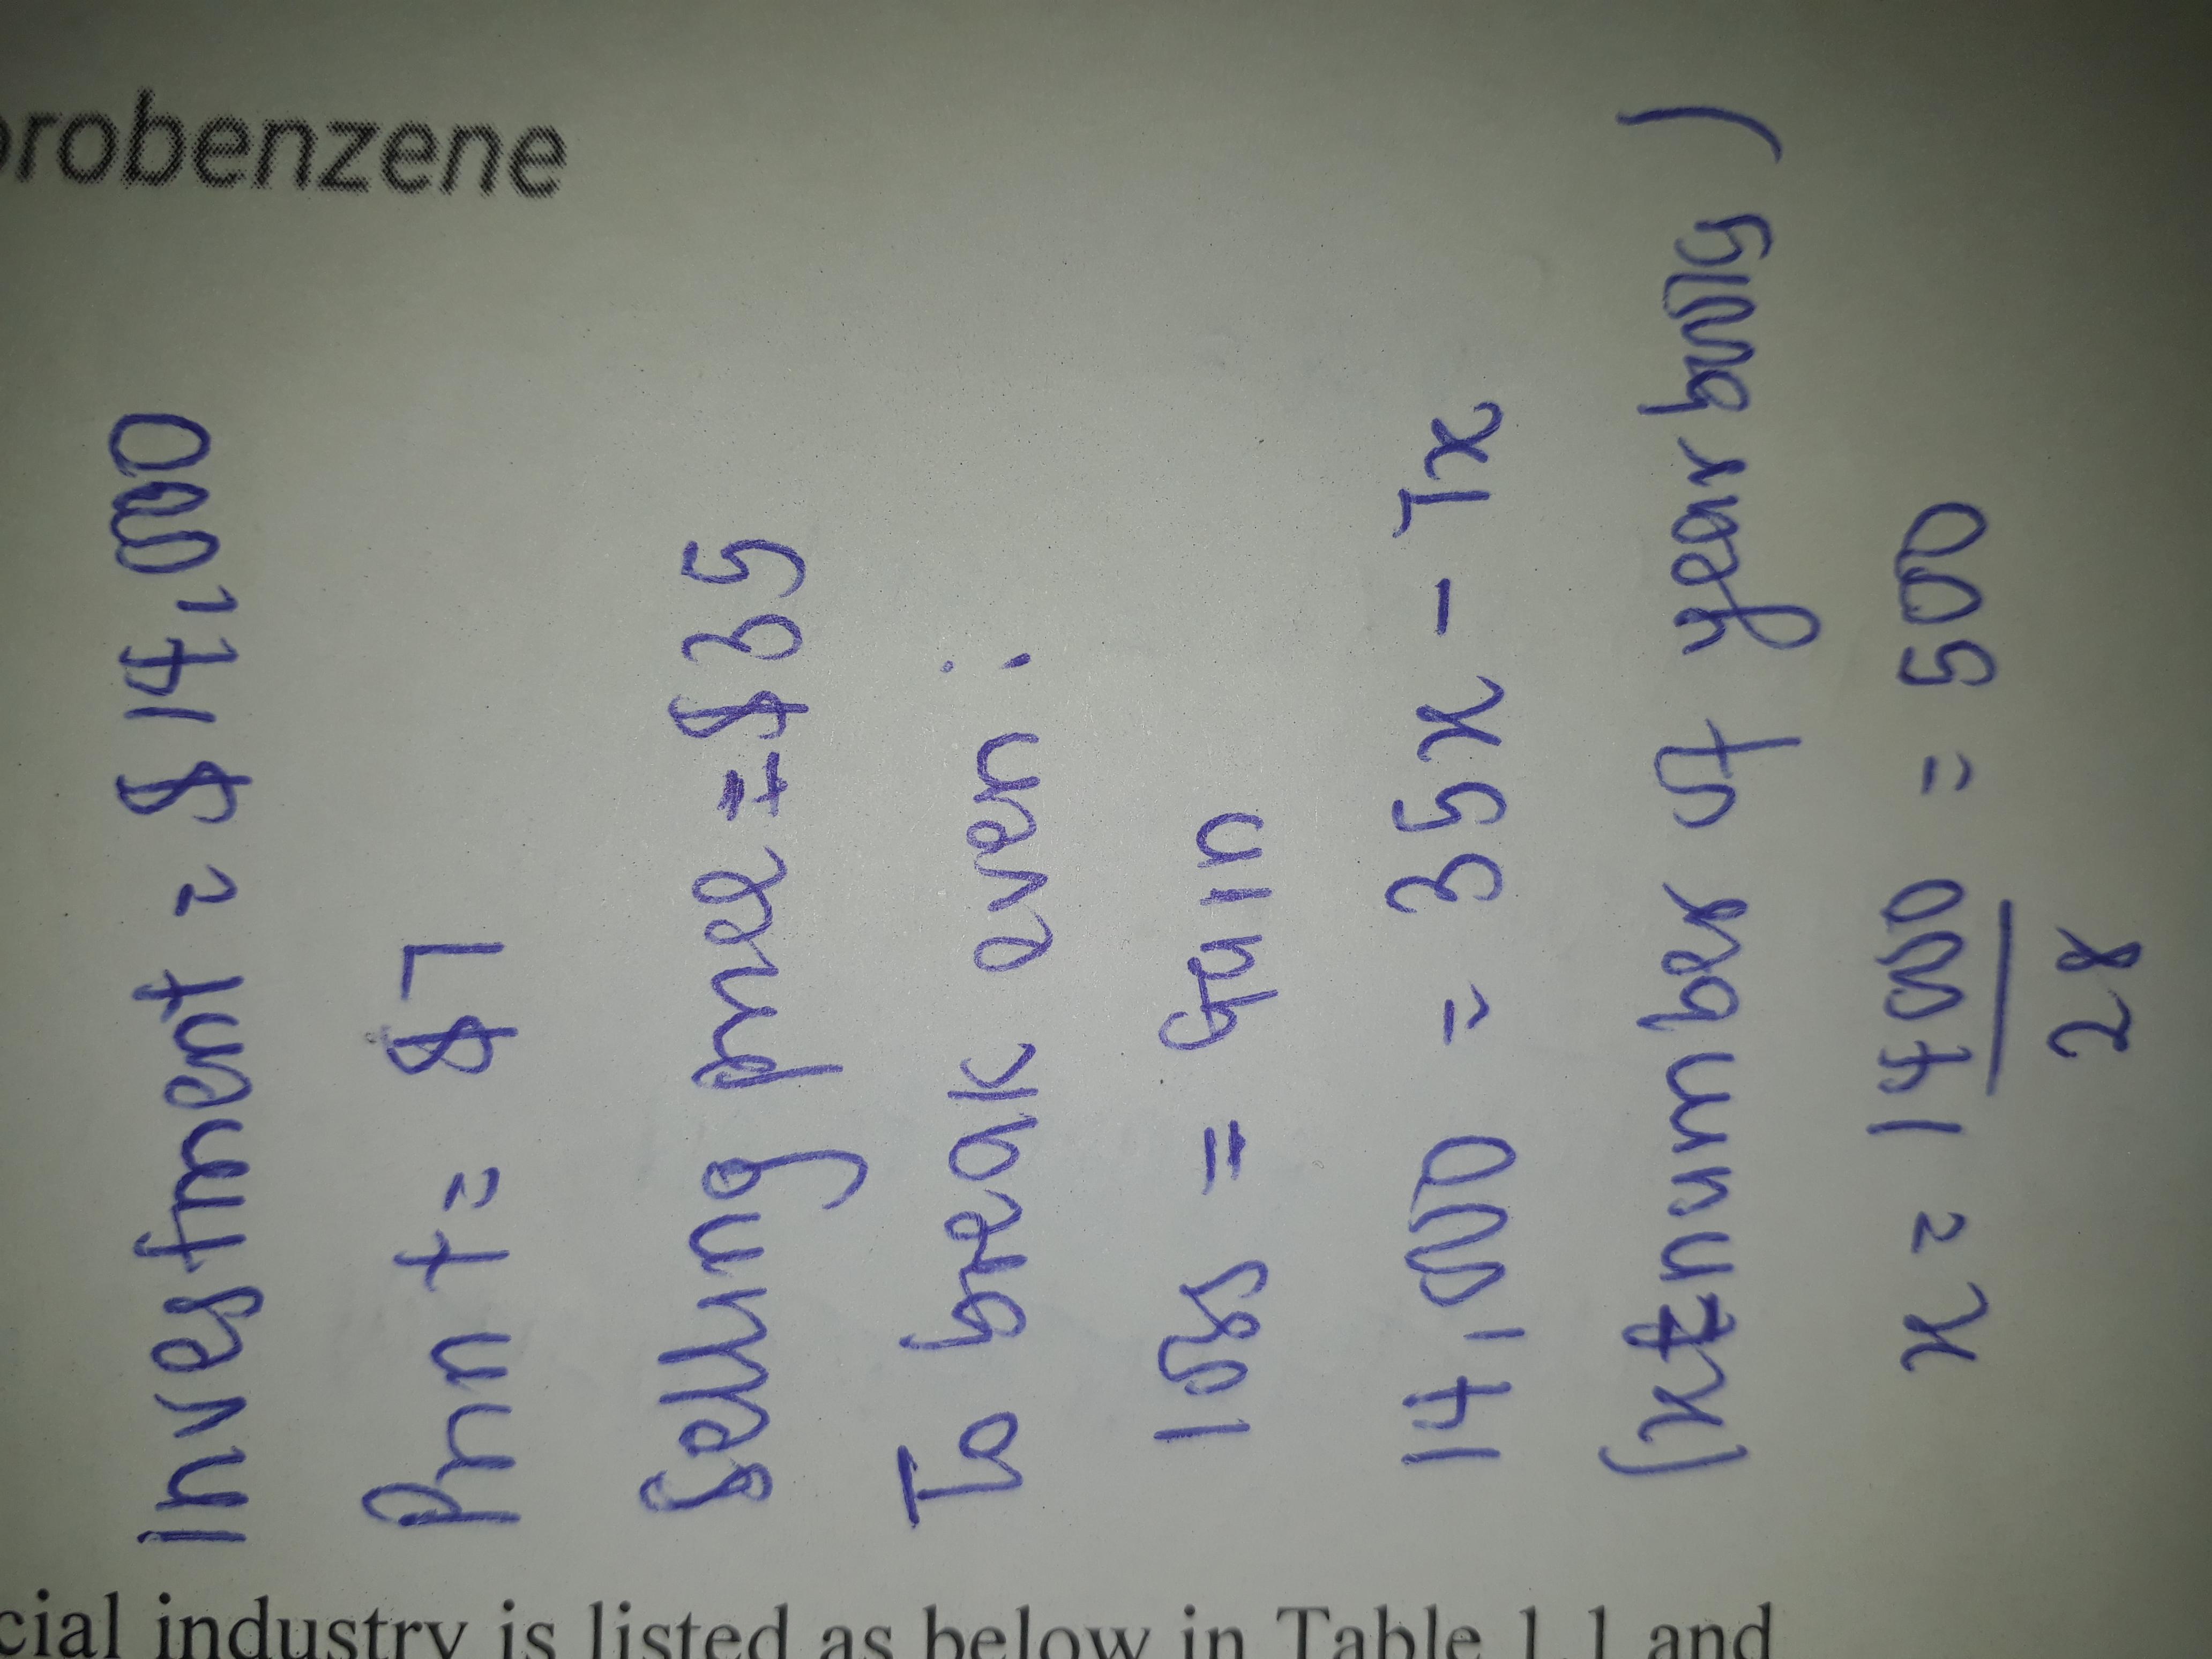 robenzene
Investment = $ 14,000
Print = $7
Selling price = $35
To break even :
loss = gain
14,000 = 35x - 7x
(x = number of yearbooks)
x = 14000 = 500
28
cial industry is listed as below in Table 1.1 and